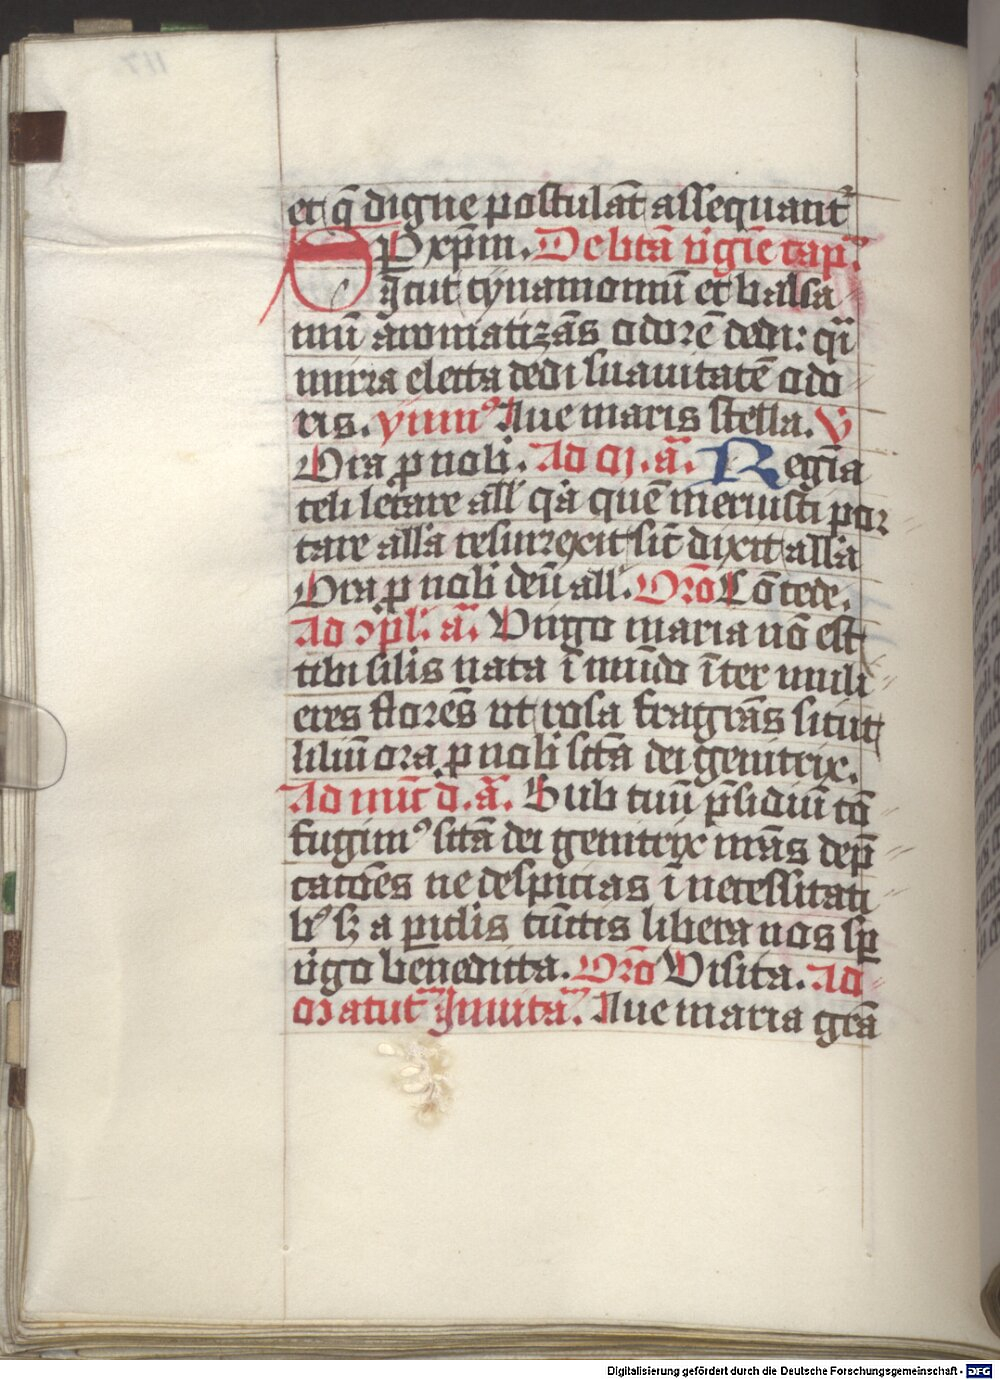 et q̄ digne postulāt assequant᷑
P xp̄m. De btā v̓gīe cap᷑.
Sicut cynamomū et balsa
mū aromatizās odorē dedi: q̄i
mirra electa dedi suauitatē odo
ris. ymn᷒ Aue maris stella. V
Ora p nobi. Ad m. a᷑. Regīa
celi letare all' q̓a quē meruisti por
tare all̓a resurrexit sic̄ dixit all̓a
Ora p nobi deū all'. Orō Cōcede.
Ad ɔpl'. a᷑. Virgo maria nō est
tibi silis nata ī mūdo īter muli
eres florēs ut rosa fragrās sicut
liliū ora p nobi sctā dei genitrix.
Ad nūc d. a᷑. Sub tuū p̄sidiū cō
fugim᷒ sctā dei genitrix nrās dep̄
catōes ne despicias ī necessitati
b᷒ sȝ a piclis cūctis libera nos sp̄
v̓go benedicta. Orō Visita. Ad
matut᷑ Inuita᷑. Aue maria grā
Digitalisierung gefördert durch die Deutsche Forschungsgemeinschaft - DFG